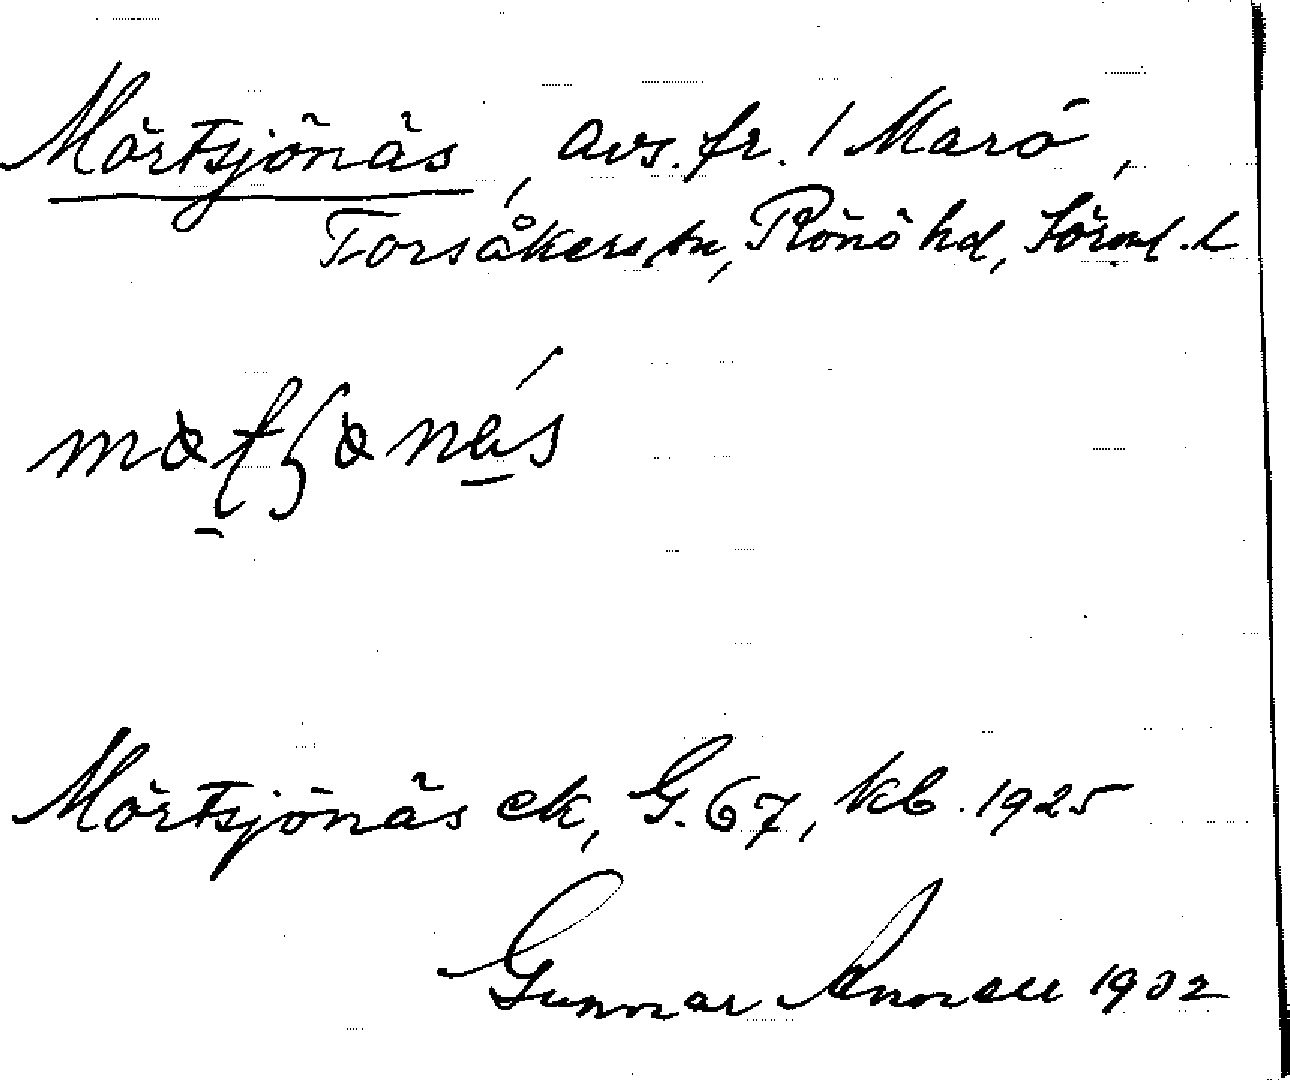 Mörtsjönäs, avs. fr. 1 Marö,
Forsåkers sn, Rönö hd, Sörml. l
Mörtsjönäs ek, G. 67, kb. 1925
Gunnar 1932